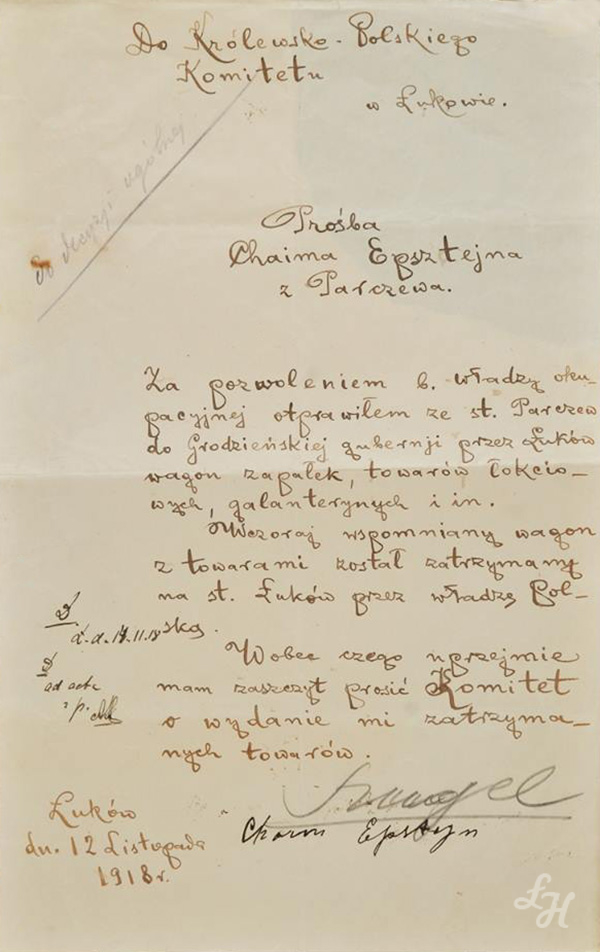 Do Królewsko-Polskiego
Komitetu
w Łukowie.
do decyzji ogólnej
Prośba
Chaima Epsztejna
z Parczewa.
Za pozwoleniem b. władzy oku-
pacyjnej otprawiłem ze st. Parczew
do Grodzieńskiej gubernji przez Łuków
wagon zapałek, towarów łokcio-
wych, galanterynych i in.
Wczoraj wspomniany wagon
z towarami został zatrzymany
na st. Łuków przez władzę Pol-
ską.
Wobec czego uprzejmie
mam zaszczyt prosić Komitet
o wydanie mi zatrzyma-
nych towarów.
ad acta
Łuków
dn. 12 Listopada
1918 r.
Epsteyn
ŁH